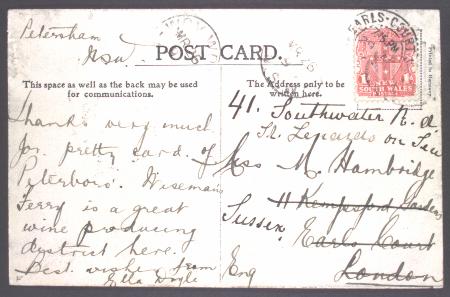 Petersham
NSW
POST CARD.
EARLS-COURT
Printed in Germany.
1 d
NEW
SOUTH WALES
This space as well as the back may be used
for communications.
The Address only to be
written here.
Thanks very much
for pretty card of
Peterboro'. Wisemans
Ferry is a great
wine producing
district here.
Best wishes from
Ella Doyle
41. Southwater Rd
St. Leonards on Sea
Miss M. Hambridge
11 Kempsford Gardens
Sussex,
Earls Court
London
Eng